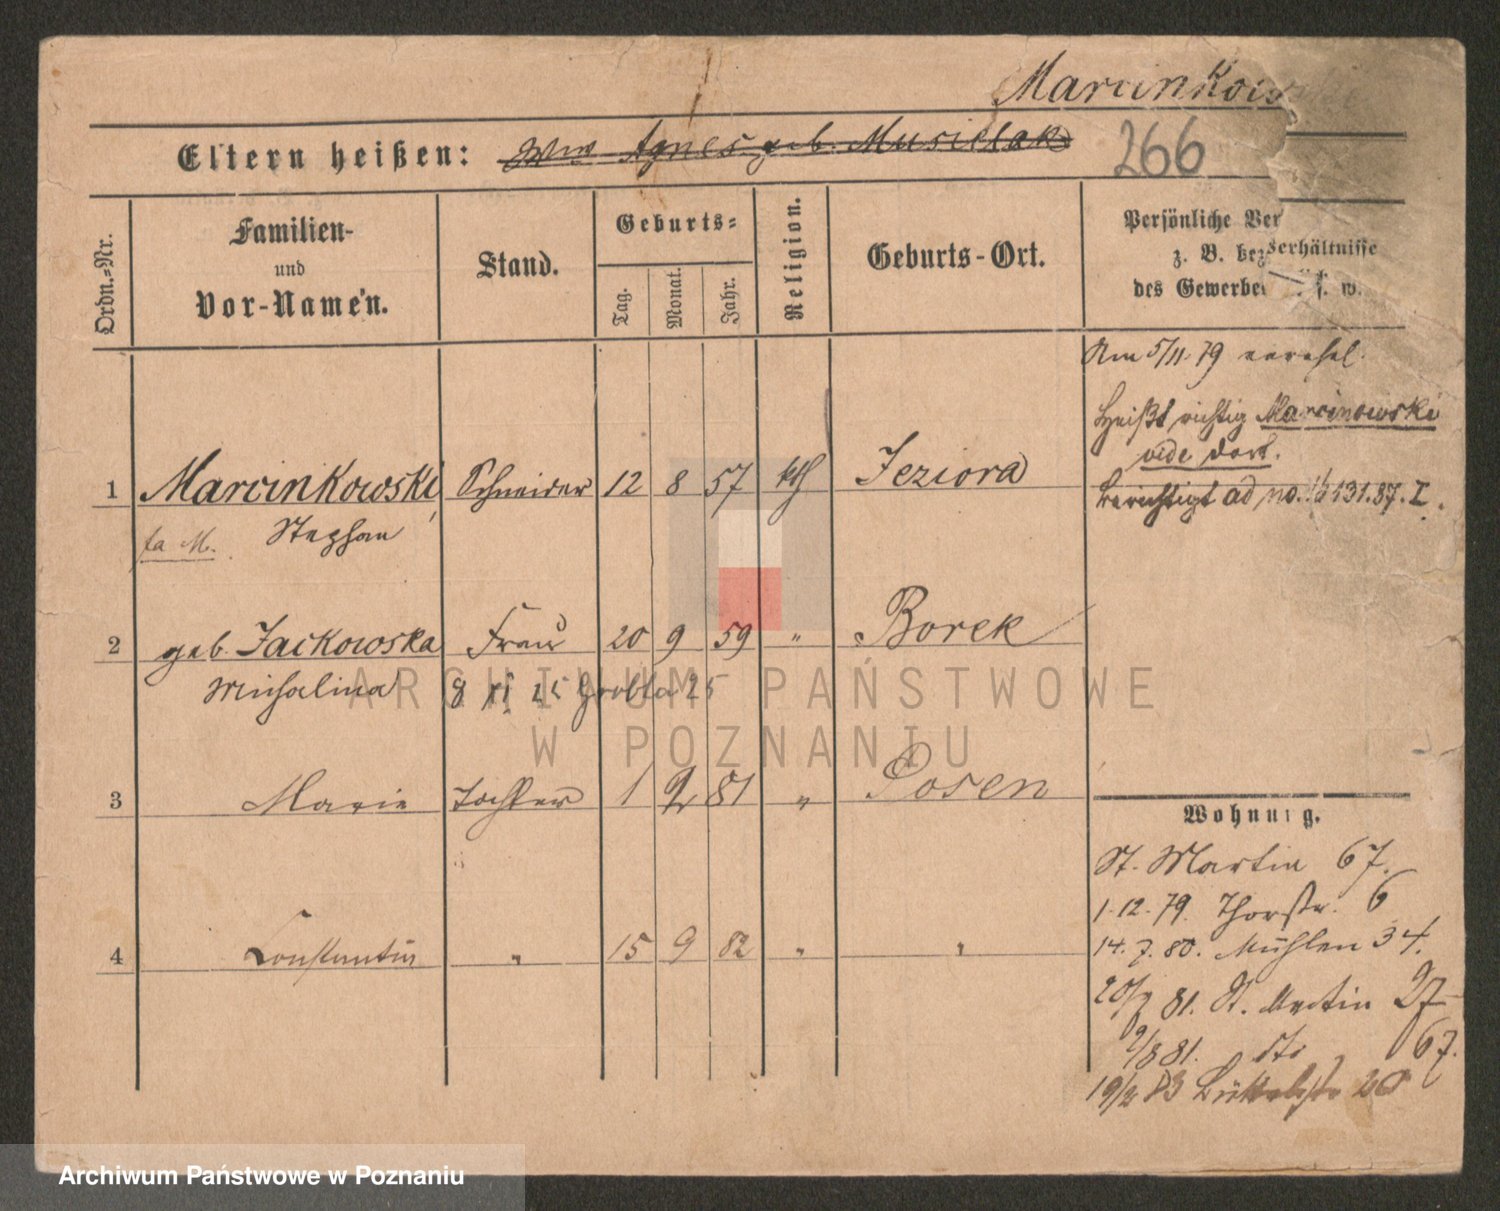 Marcinkowski
Eltern heißen: Wwe Agnes geb. Musielak
266
Ordn.=Nr.
Familien-
und
Vor-Namen.
Stand.
Geburts=
Tag.
Monat.
Jahr.
Religion.
Geburts-Ort.
Persönliche Ver
serhältnisse
z. B. bez
des Gewerbe f. w.
Am 5/11.79 verehel.
Heißt richtig Marcinowski
vide dort.
Berichtigt ad no. 131.87. I.
1 Marcinkowski Schneider 12 8 57 kth Jeziora
Stephan
2 geb. Jackowska Frau 20 9 59 " Borek
Michalina 8 XI 25 Grobla 25
ARCHIWUM PAŃSTWOWE
W POZNANIU
3 Marie Tochter 1 2 81 " Posen
4 Constantin " 15 9 82 " "
Wohnung.
St. Martin 67.
1.12.79. Thorstr. 6
14.7.80. Mühlen 34.
20/2 81. St. Martin 27
9/8 81. dto 67.
19/2 83 Büttelstr 20
Archiwum Państwowe w Poznaniu